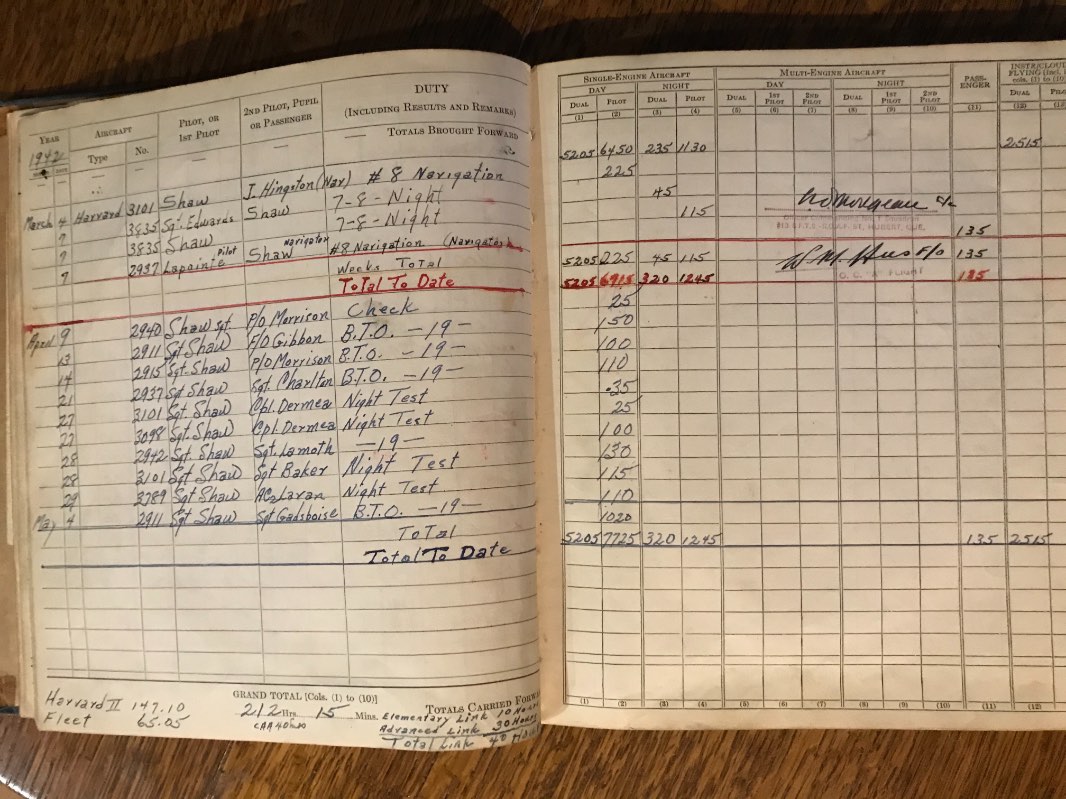 YEAR
1942
AIRCRAFT
Type
No.
PILOT, OR
1ST PILOT
2ND PILOT, PUPIL
OR PASSENGER
DUTY
(INCLUDING RESULTS AND REMARKS)
— — — TOTALS BROUGHT FORWARD
March 4 Harvard 3101 Shaw J. Hingston (Nav) # 8 Navigation
7 3835 Sgt. Edwards Shaw 7-8-Night
7 3835 Shaw 7-8-Night
7 2937 Lapointe Pilot Shaw navigator #8 Navigation (Navigator)
Weeks Total
Total To Date
April 9 2940 Shaw Sgt. P/O Morrison Check
13 2911 Sgt Shaw F/O Gibbon B.T.O. -19-
14 2915 Sgt. Shaw P/O Morrison B.T.O. -19-
21 2937 Sgt Shaw Sgt. Charlton B.T.O. -19-
27 3101 Sgt. Shaw Cpl. Dermea Night Test
27 3098 Sgt. Shaw Cpl. Dermea Night Test
28 2942 Sgt. Shaw Sgt. Lamoth -19-
28 3101 Sgt Shaw Sgt Baker Night Test
29 3789 Sgt Shaw AC2 Lavan Night Test
May 4 2911 Sgt Shaw Sgt Gadsboise B.T.O. -19-
Total
Total To Date
GRAND TOTAL [Cols. (1) to (10)]
212 Hrs. 15 Mins.
CAA 40 hrs
TOTALS CARRIED FORWARD
Harvard II 147.10
Fleet 65.05
Elementary Link 10 Hours
Advanced Link 30 Hours
Total Link 40
SINGLE-ENGINE AIRCRAFT
DAY NIGHT
DUAL PILOT DUAL PILOT
(1) (2) (3) (4)
MULTI-ENGINE AIRCRAFT
DAY NIGHT
DUAL 1ST PILOT 2ND PILOT DUAL 1ST PILOT 2ND PILOT
(5) (6) (7) (8) (9) (10)
PASS-
ENGER
(11)
INSTR/CLOUD
FLYING (Incl. in
cols. (1) to (10)
DUAL PILOT
(12)
5205 6450 235 1130 2515
225
45
115
135
5205 225 45 115 W M F/O 135
5205 6915 320 1245 O. C. "A" FLIGHT 135
25
150
100
110
.35
25
100
130
115
110
1020
5205 7725 320 1245 135 2515
(1) (2) (3) (4) (5) (6) (7) (8) (9) (10) (11) (12)